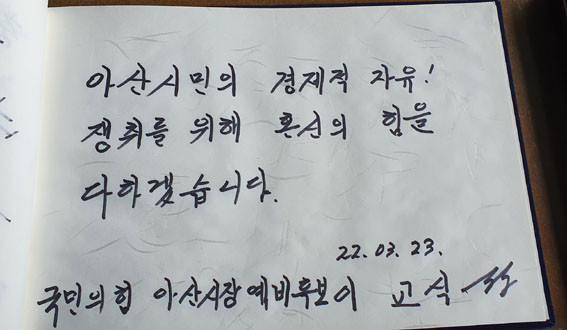 아산시민의 경제적 자유!
쟁취를 위해 혼신의 힘을
다하겠습니다.
22.03.23.
국민의힘 아산시장예비후보 이 교식